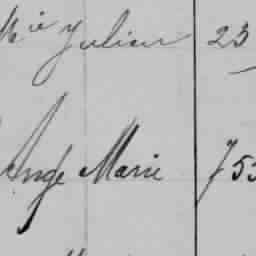 Mie Julien 23
Ange Marie 753